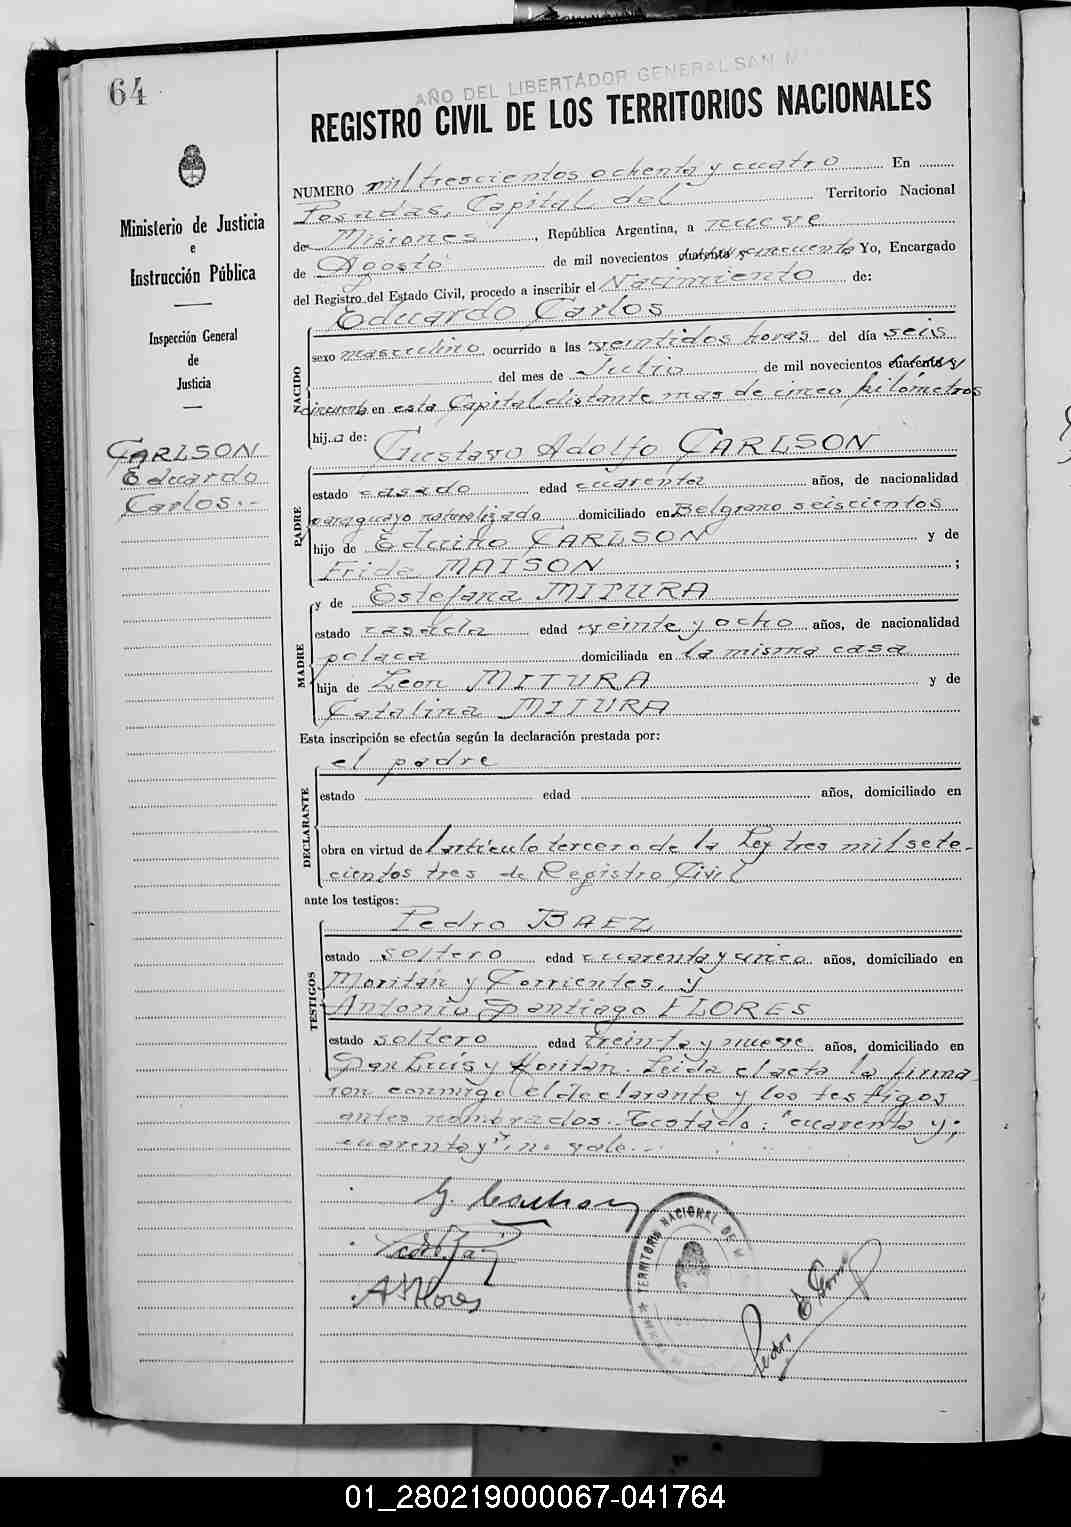 64
AÑO DEL LIBERTADOR GENERAL SAN M
REGISTRO CIVIL DE LOS TERRITORIOS NACIONALES
Ministerio de Justicia
e
Instrucción Pública
Inspección General
de
Justicia
CARLSON
Eduardo
Carlos.-
NUMERO mil trescientos ochenta y cuatro En
Posadas, Capital del Territorio Nacional
de Misiones, República Argentina, a nueve
de Agosto de mil novecientos cuarenta y cincuenta, Yo, Encargado
del Registro del Estado Civil, procedo a inscribir el Nacimiento de:
NACIDO
Eduardo Carlos
sexo masculino ocurrido a las veintidos horas del día seis
del mes de Julio de mil novecientos cuarenta y
cincuenta en esta Capital distante mas de cinco kilómetros
hijo de: Gustavo Adolfo CARLSON
PADRE
estado casado edad cuarenta años, de nacionalidad
paraguayo naturalizado domiciliado en Belgrano seiscientos
hijo de Eduino CARLSON y de
Frida MATSON;
MADRE
y de Estefana MITURA
estado casada edad veinte y ocho años, de nacionalidad
polaca domiciliada en la misma casa
hija de Leon MITURA y de
Catalina MITURA
Esta inscripción se efectúa según la declaración prestada por:
DECLARANTE
el padre
estado edad años, domiciliado en
obra en virtud de l artículo tercero de la Ley tres mil sete-
cientos tres de Registro Civil
ante los testigos:
TESTIGOS
Pedro BAEZ
estado soltero edad cuarenta y cinco años, domiciliado en
Moritán y Corrientes, y
Antonio Santiago FLORES
estado soltero edad treinta y nueve años, domiciliado en
San Luis y Moritán. Leida el acta la firma-
ron conmigo el declarante y los testigos
antes nombrados. Testado: "cuarenta y;
cuarenta y": no vale.-
G. Carlson
A S Flores
TERRITORIO NACIONAL DE M
Pedro E Gomez
01_280219000067-041764